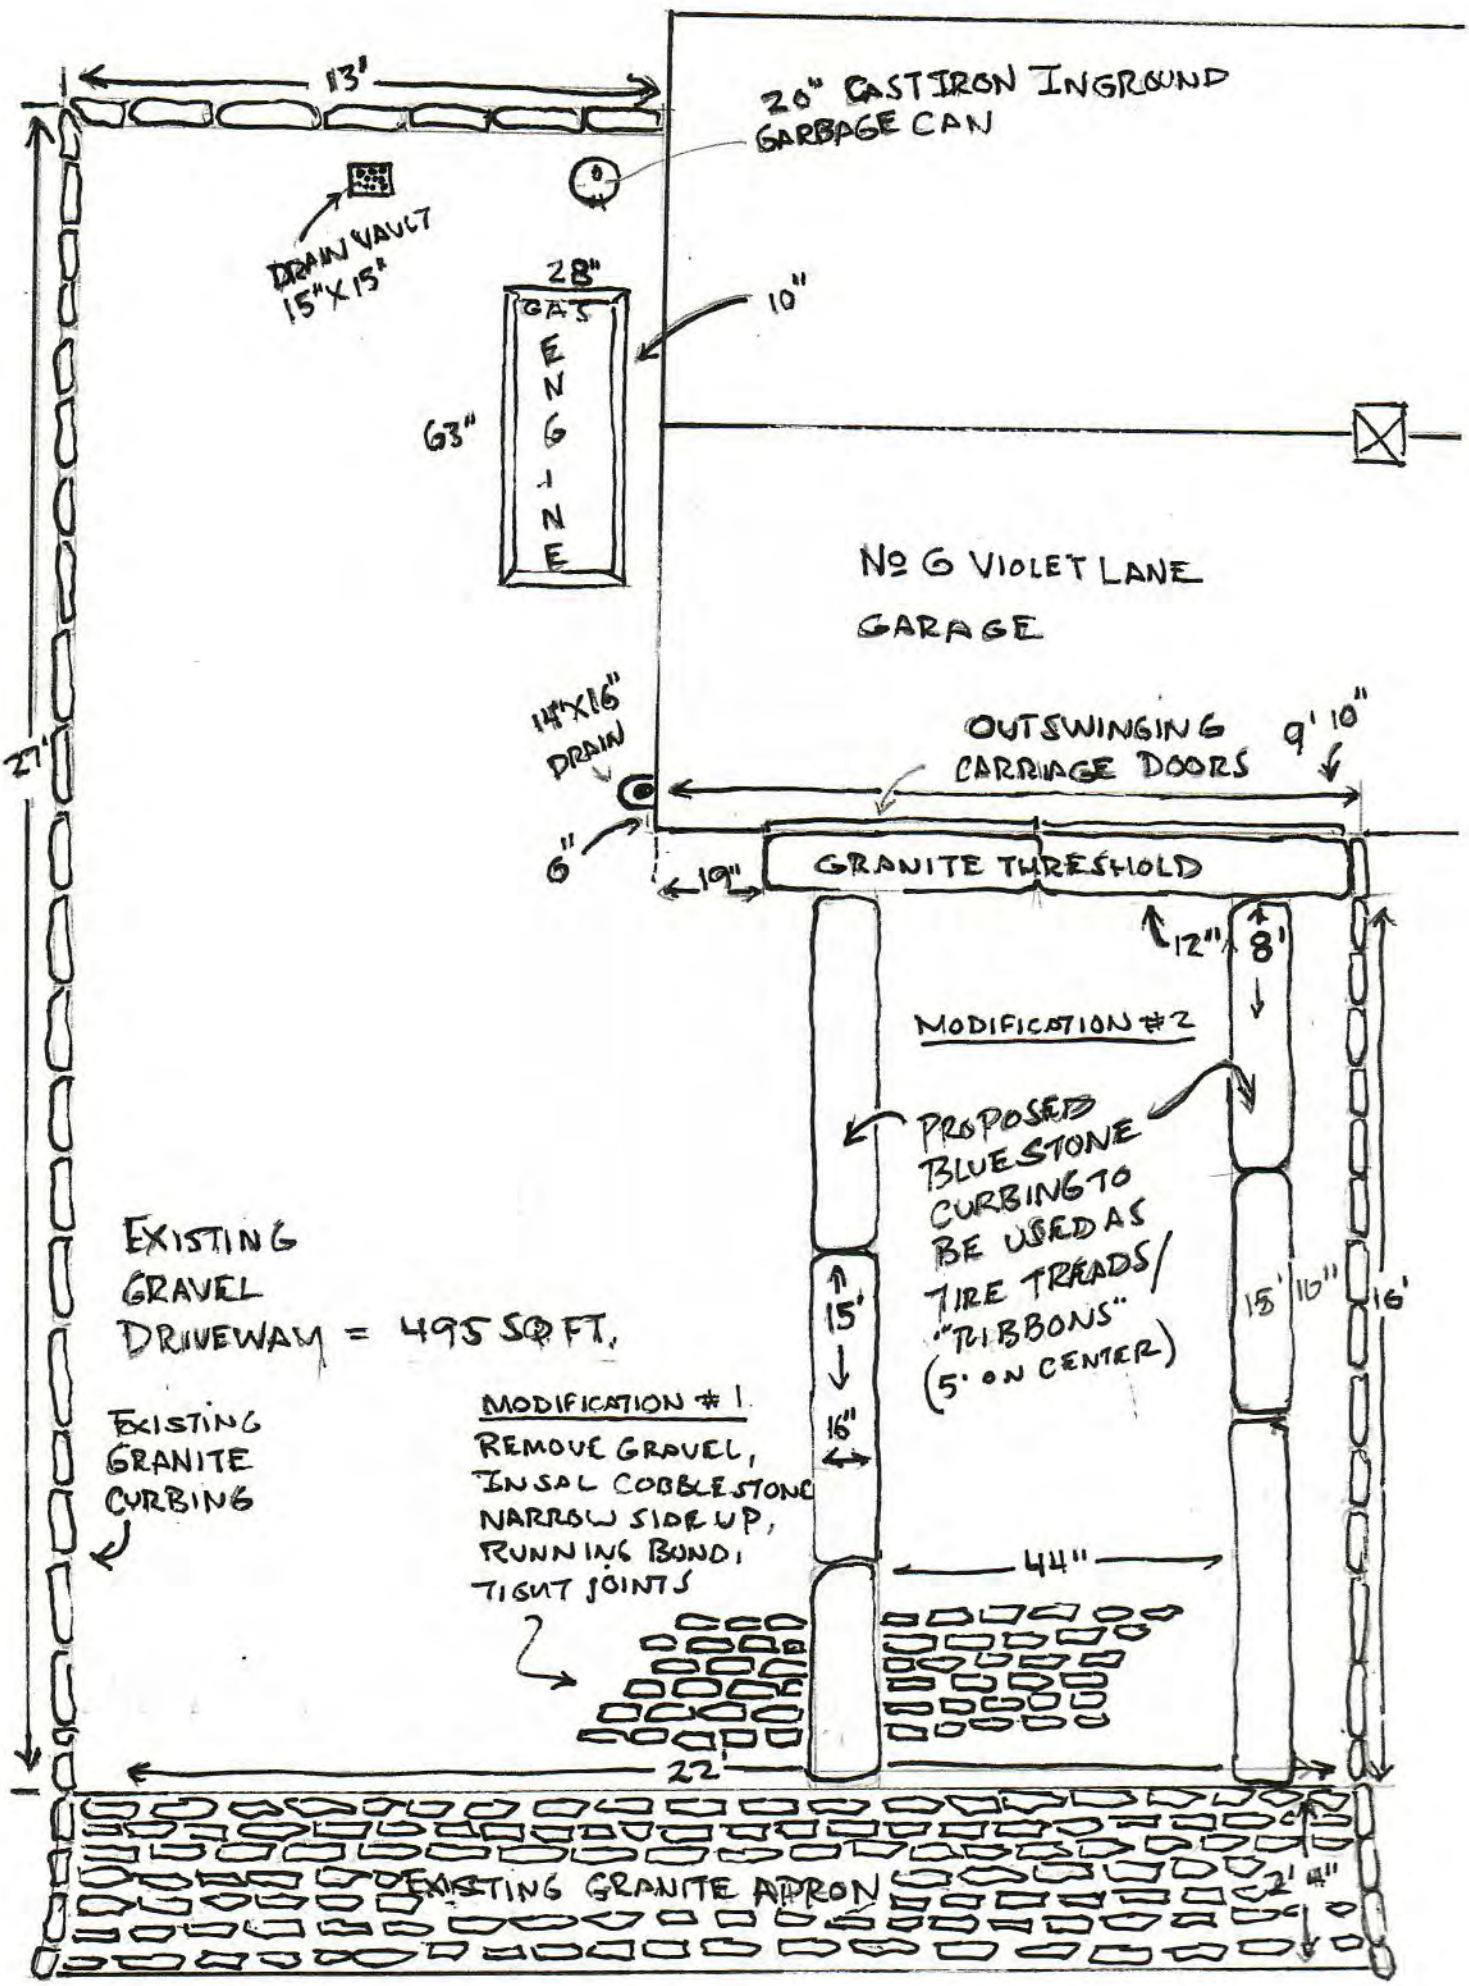 13'
20" CAST IRON INGROUND
GARBAGE CAN
DRAIN VAULT
15"X15"
28"
10"
GAS
E
N
G
I
N
E
63"
Nº 6 VIOLET LANE
GARAGE
27'
14"X16"
DRAIN
OUTSWINGING
CARRIAGE DOORS
9' 10"
6"
19"
GRANITE THRESHOLD
12"
8'
MODIFICATION #2
PROPOSED
BLUESTONE
CURBING TO
BE USED AS
TIRE TREADS/
"RIBBONS"
(5' ON CENTER)
15'
16"
15'
16"
16'
EXISTING
GRAVEL
DRIVEWAY = 495 SQ FT.
EXISTING
GRANITE
CURBING
MODIFICATION #1
REMOVE GRAVEL,
INSAL COBBLESTONE
NARROW SIDE UP,
RUNNING BOND,
TIGHT JOINTS
44"
22'
EXISTING GRANITE APRON
2' 4"